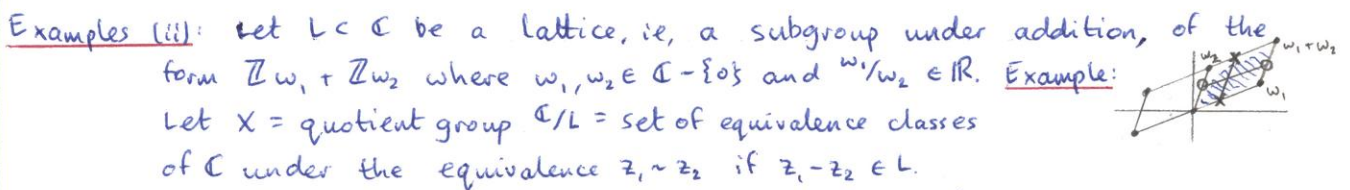 Examples (ii): Let L ⊂ ℂ be a lattice, ie, a subgroup under addition, of the
form ℤw₁ + ℤw₂ where w₁, w₂ ∈ ℂ - {0} and w₁/w₂ ∈ ℝ. Example:
w₂ w₁+w₂ w₁
Let X = quotient group ℂ/L = set of equivalence classes
of ℂ under the equivalence z₁ ~ z₂ if z₁ - z₂ ∈ L.